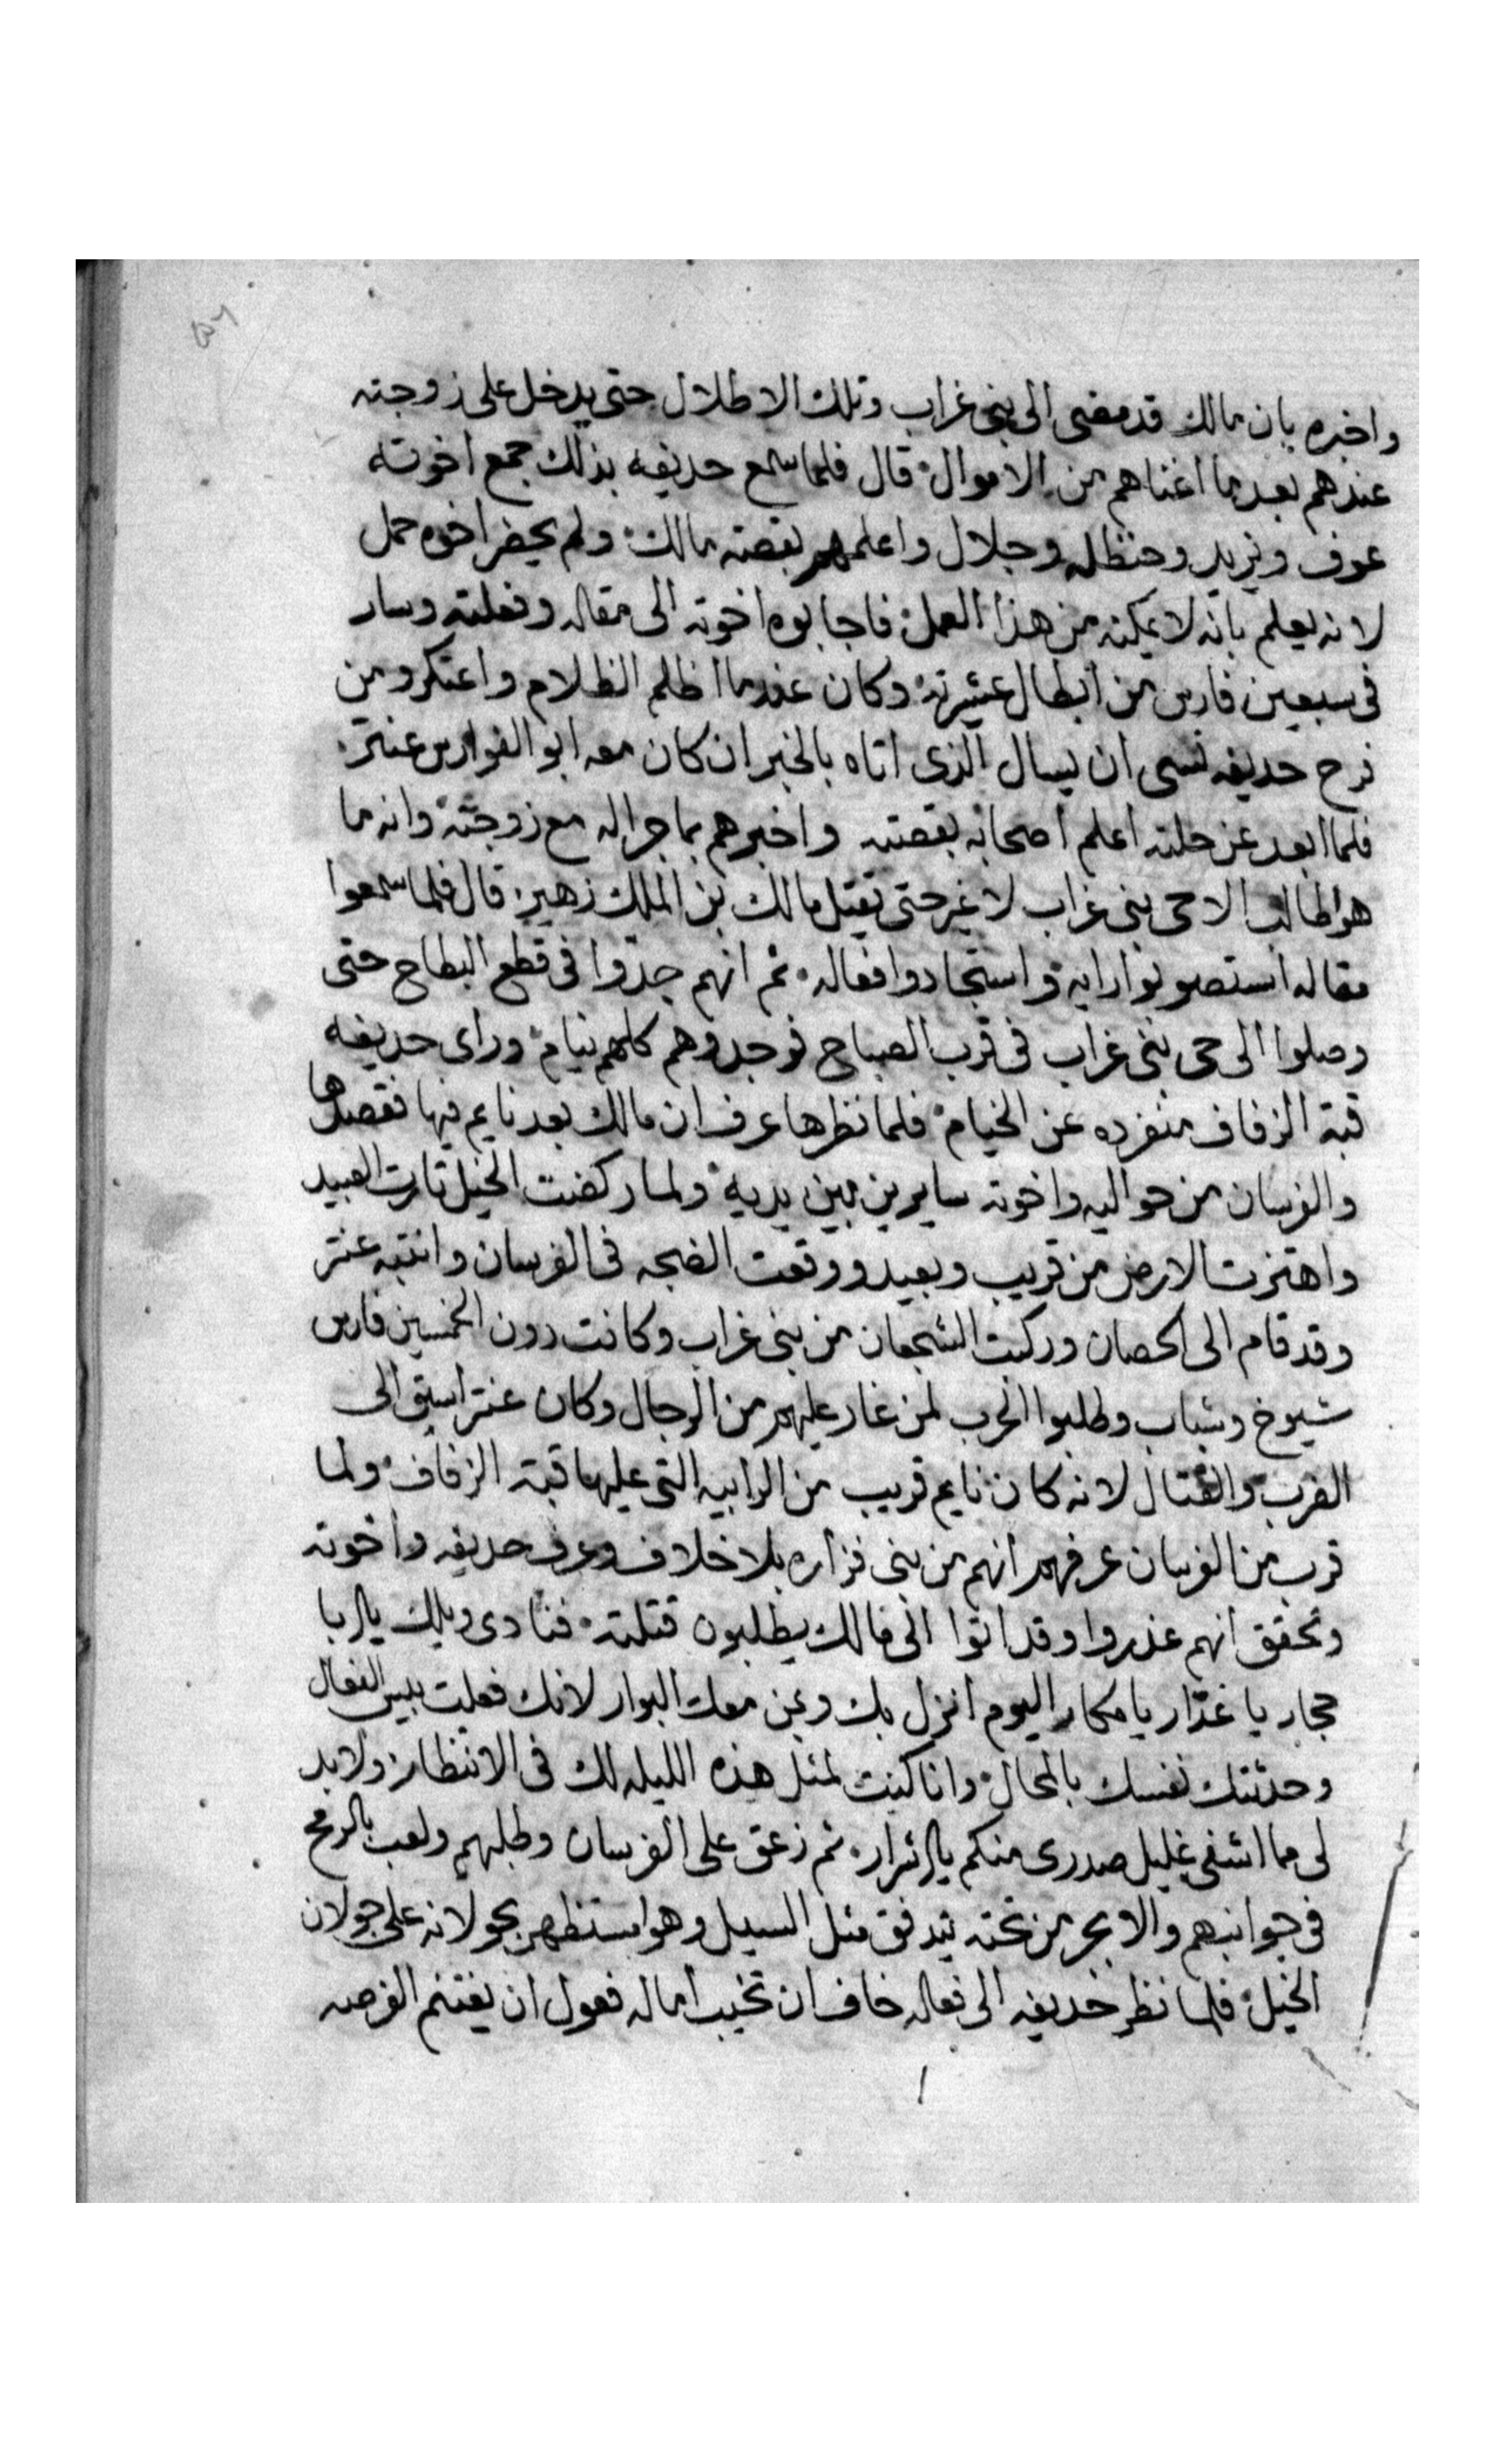 واخبره بان مالك قد مضى الى بنى غراب وتلك الاطلال حتى يدخل على زوجته
عندهم بعد ما اغناهم من الاموال قال فلما سمع حديفه بذلك جمع اخوته
عوف ويزيد وحنظله وجلال واعلمهم بقصته مالك ولم يحضر اخوه حمل
لانه يعلم بانه لا يمكنه من هذا العمل فاجابوه اخوته الى مقاله وفعلته وسار
فى سبعين فارس من ابطال عشيرته وكان عندما اظلم الظلام واعتكر ومن
فرح حديفه نسى ان يسال الذى اتاه بالخبر ان كان معه ابو الفوارس عنتر
فلما ابعد عن حلته اعلم اصحابه بقصته واخبرهم بما جرا له مع زوجته وانه ما
هو اطالب الا حى بنى غراب لا غير حتى يقتل مالك بن الملك زهير قال فلما سمعوا
مقاله استصوبوا رايه واستجادوا فعاله ثم انهم جدوا فى قطع البطاح حتى
وصلوا الى حى بنى غراب فى قرب الصباح فوجدوهم كلهم نيام وراى حديفه
قبة الزفاف منفرده عن الخيام فلما نظرها عرف ان مالك بعد نايم فيها فقصدها
والفرسان من حواليه واخوته سايرين بين يديه ولما ركضت الخيل تارت العبيد
واهتزت الارض من قريب وبعيد ووقعت الضجه فى الفرسان وانتبه عنتر
وقد قام الى الحصان وركبت الشجعان من بنى غراب وكانت دون الخمسين فارس
شيوخ وشباب وطلبوا الحرب لمن غار عليهم من الرجال وكان عنتر اسبق الى
الضرب والقتال لانه كان نايم قريب من الرابيه التى عليها قبة الزفاف ولما
قرب من الفرسان عرفهم انهم من بنى فزاره بلا خلاف وعرف حديفه واخوته
وتحقق انهم غدروا وقد اتوا الى مالك يطلبون قتلته فنادى ويلك يا ربا
حجار يا غدار يا مكار اليوم انزل بك وبمن معك البوار لانك فعلت بيس الفعال
وحدثتك نفسك بالمحال وانا كنت لمثل هذه الليله لك فى الانتظار ولا بد
لى ما اشفى غليل صدرى منكم يا اشرار ثم زعق على الفرسان وطلبهم ولعب بالرمح
فى جوانبهم والابجر من تحته يتدفق مثل السيل وهو امستظهر بجولانه على جولان
الخيل فلما نظر حديفه الى فعاله خاف ان تخيب اماله فعول ان يغتنم الفرصه